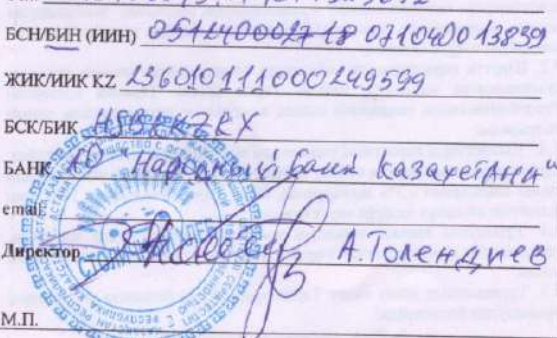 БСН/БИН (ИИН) 051240002718 071040013839
ЖИК/ИИК KZ 236010111000249599
БСК/БИК HSBKKZKX
БАНК АО "Народный Банк Казахстана"
email:
Директор А.Толендиев
М.П.